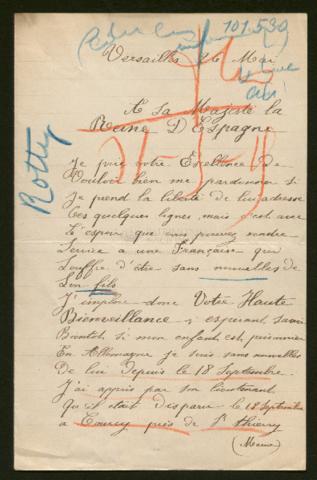 101.530
Versailles 26 Mai
A Sa Majesté la
Reine D'Espagne
Rotty
Je prie votre Exellence de
Vouloir bien me pardonner si
Je prend la liberté de lui adresser
Ces quelques lignes mais c'est avec
L'espoir que vous pouvez rendre
Service a une Française qui
Souffre d'être sans nouvelles de
Son fils
J'implore donc Votre Haute
Bienveillance espérant savoir
Bientôt si mon enfant est prisonnier
En Allemagne je suis sans nouvelles
De lui depuis le 18 Septembre.
J'ai appris par son lieutenant
Qu'il était disparu le 18 Septembre
a Courcy près de St Thierry
(Marne)